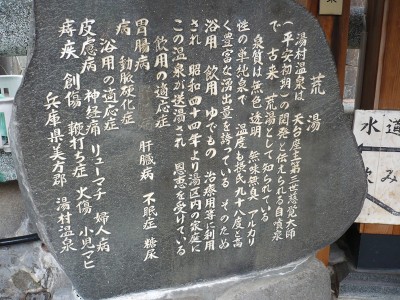 荒湯
湯村温泉は 天台座主第三世慈覚大師
(平安初期)の開発と伝えられる自噴泉
で 古来 荒湯として知られている
泉質は無色 透明 無味無臭 アルカリ
性の単純泉で 温度も摂氏九十八度と高
く豊富な湧出量を誇っている そのため
浴用 飲用 ゆでもの 治療用等に利用
され 昭和四十四年より湯区内の家庭に
この温泉が送湯され 恩恵を受けている
飲用の適応症
胃腸病 肝臓病 不眠症 糖尿
病 動脈硬化症
浴用の適応症
皮膚病 神経痛 リューマチ 婦人病
痔疾 創傷 鞭打ち症 火傷 小児マヒ
兵庫県美方郡 湯村温泉
水道
飲み